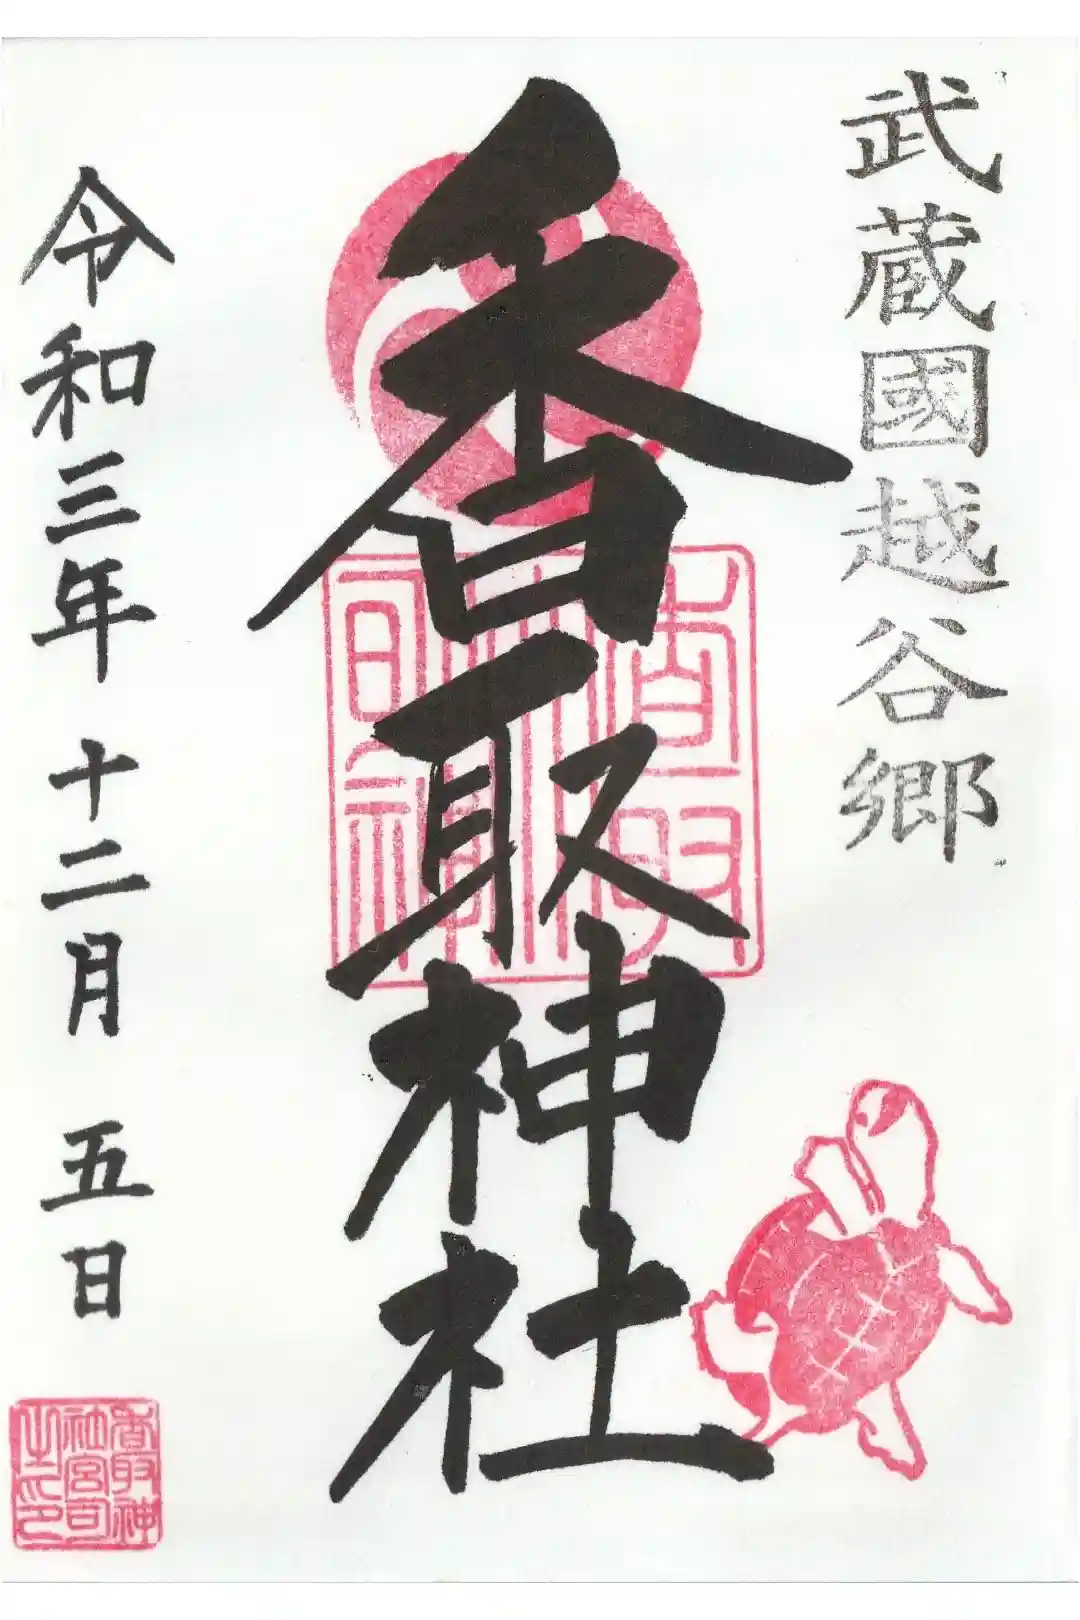 武蔵國越谷郷
香取神社
令和三年 十二月 五日
香取神
社宮司
之印